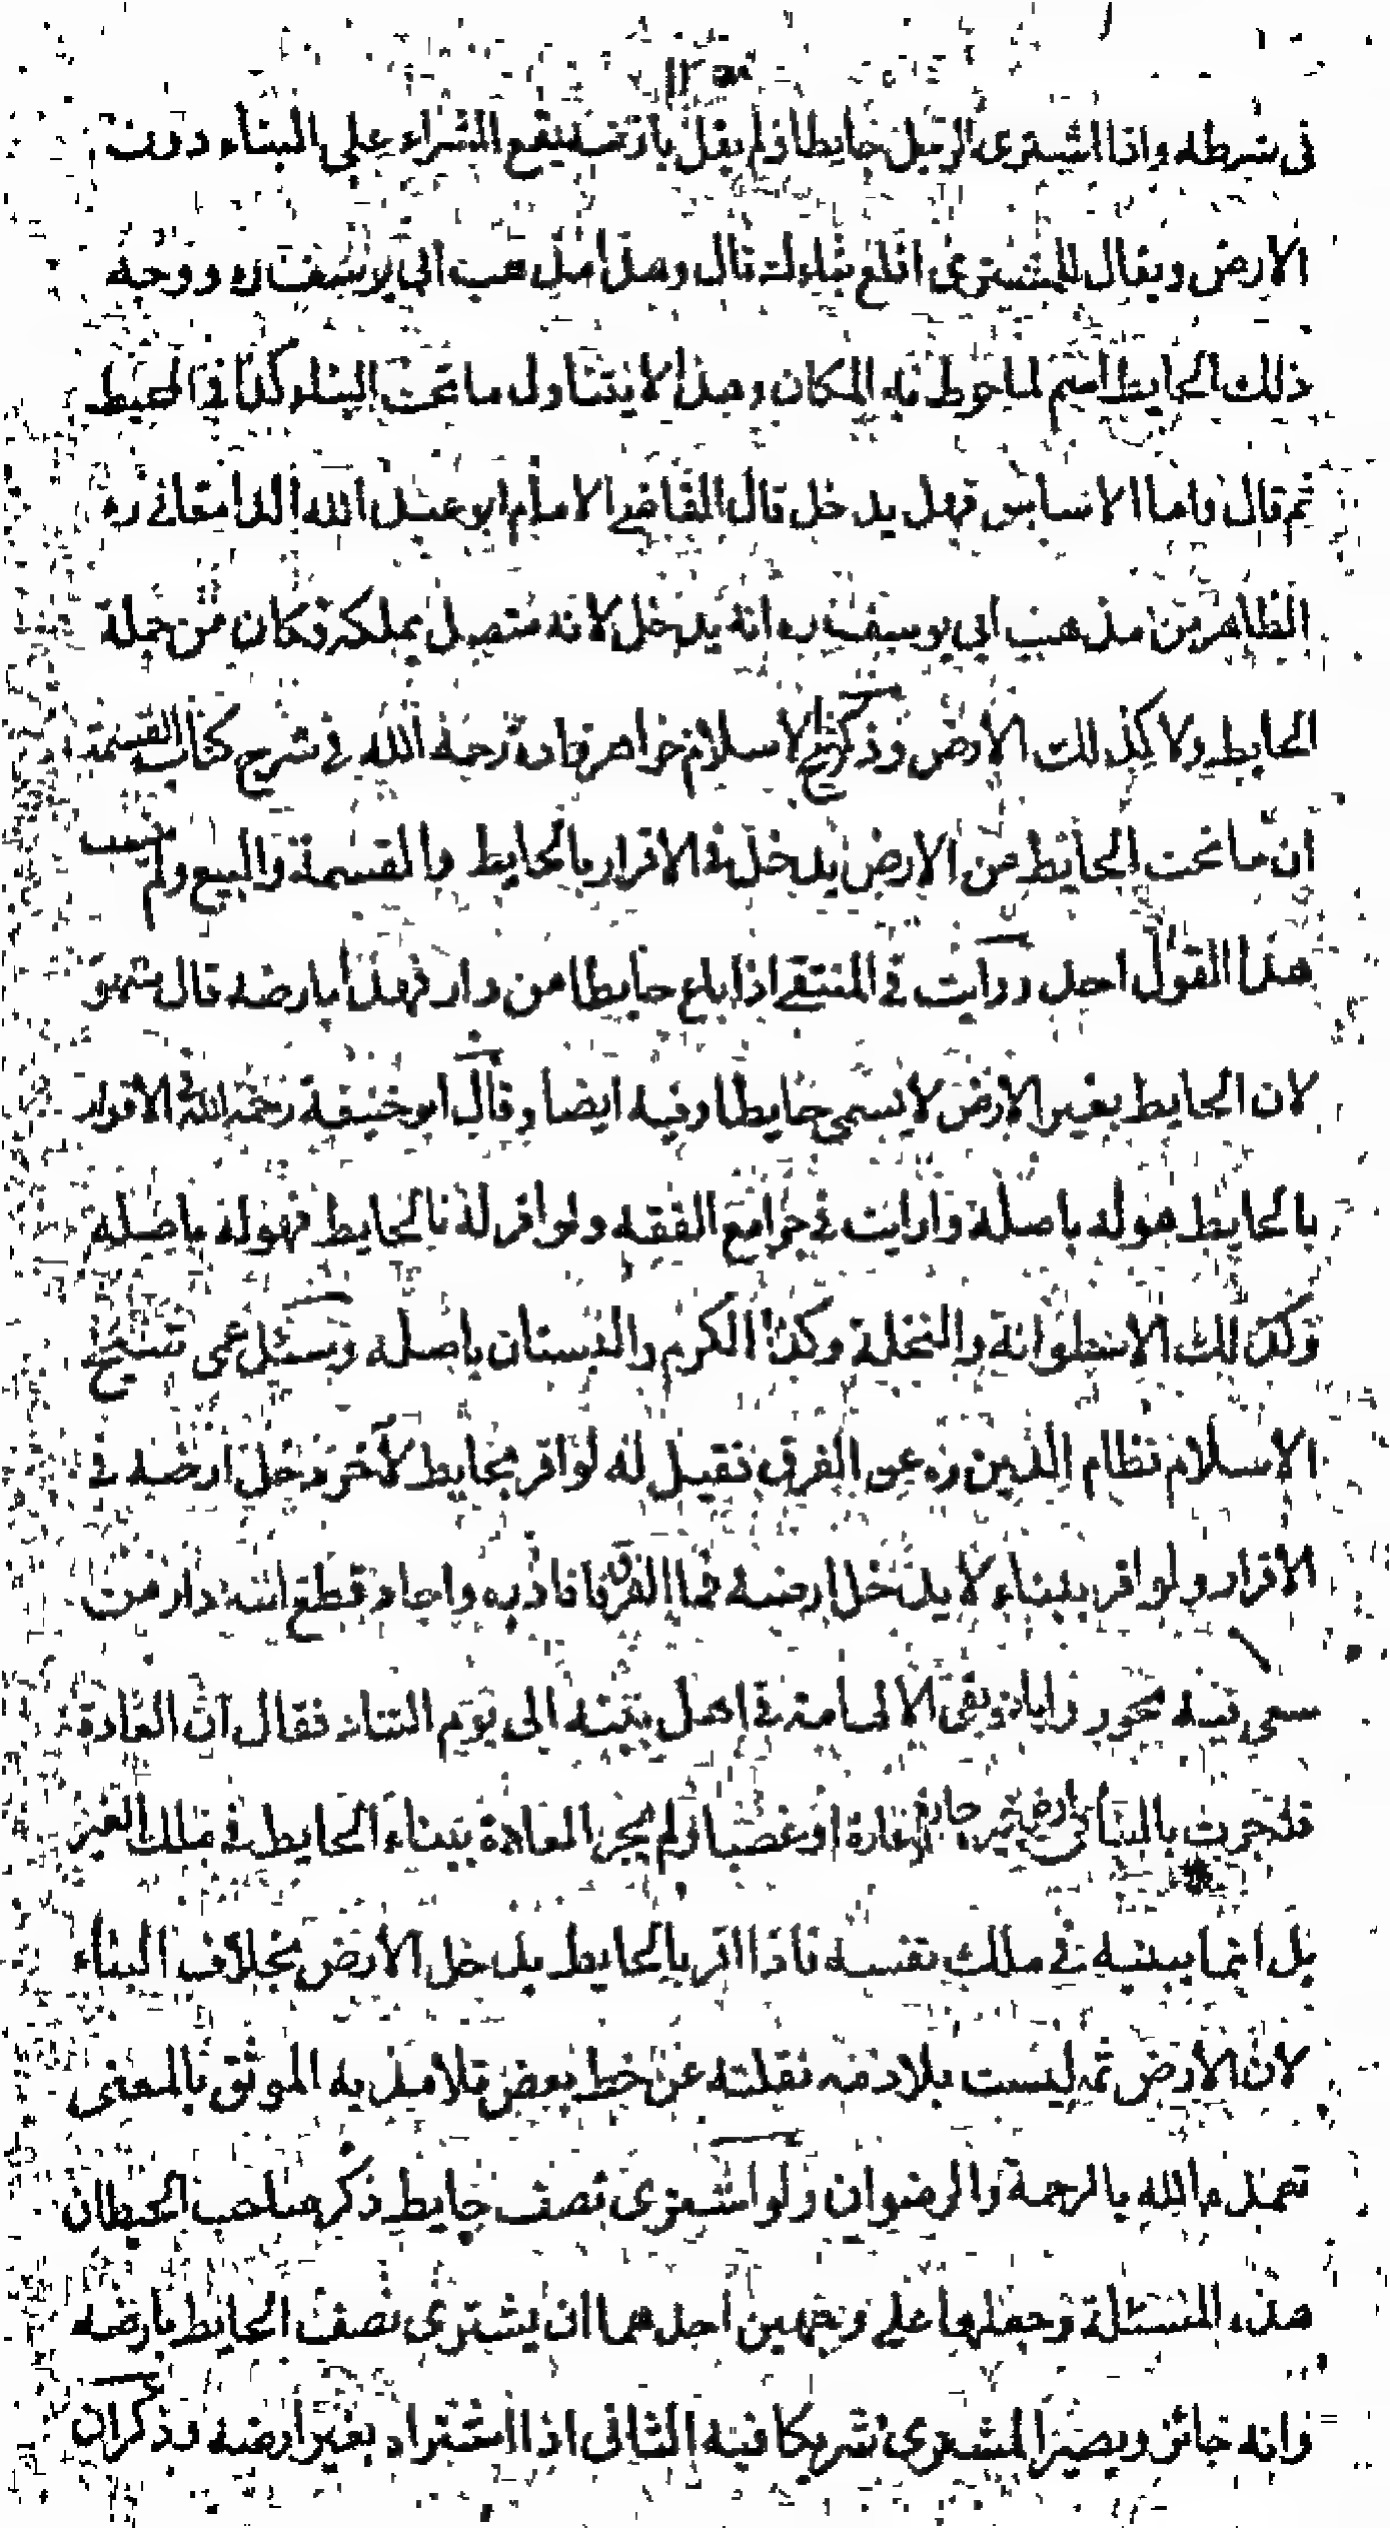 في شرطه واذا اشترى الرجل حايطا ولم يقل بارضه يقع الشراء على البناء دون
الارض ويقال للمشترى اقلع بناءك قال وهذا مذهب ابي يوسف ره ووجه
ذلك الحايط اسم لما حوط به المكان وهذا لا يتناول ما تحت البناء كذا في المحيط
ثم قال واما الاساس فهل يدخل قال القاضي الامام ابو عبد الله الدامغاني ره
الظاهر من مذهب ابي يوسف ره انه يدخل لانه متصل بملكه فكان من جملة
الحايط ولا كذلك الارض وذكر شيخ الاسلام خواهرزاده رحمه الله في شرح كتاب القسمة
ان ما تحت الحايط من الارض يدخل في الاقرار بالحايط والقسمة والبيع ولم ينسب
هذا القول احد ورايت في المنتقى اذا باع حايطا من دار فهذا بارضه قال
لان الحايط بغير الارض لا يسمى حايطا وفيه ايضا وقال ابو حنيفة رحمه الله في الاقرار
بالحايط هو له باصله ورايت في جوامع الفقه ولو اقر له بالحايط فهو له باصله
وكذلك الاسطوانة والنخلة وكذا الكرم والبستان باصله وسئل عمى شيخ
الاسلام نظام الدين ره عن الفرق فقيل له لو اقر بحايط لآخر دخل ارضه في
الاقرار ولو اقر ببناء لا يدخل ارضه فما الفرق
فقال ان العادة
قد جرت بالبناء في ارض الغير اجارة او غصبا ولم يجر العادة ببناء الحايط في ملك الغير
بل انما يبنيه في ملك نفسه فاذا اقر بالحايط يدخل الارض بخلاف البناء
لان الارض ثمه ليست نقلته عن خط بعض تلاميذ به الموثق بالمعنى
تغمده الله بالرحمة والرضوان ولو اشترى نصف حايط ذكر صاحب الحيطان
هذه المسئلة وجعلها على وجهين احدهما ان يشترى نصف الحايط بارضه
وانه جائز ويصير المشترى شريكا فيه الثاني اذا اشتراه بغير ارضه وذكر ان